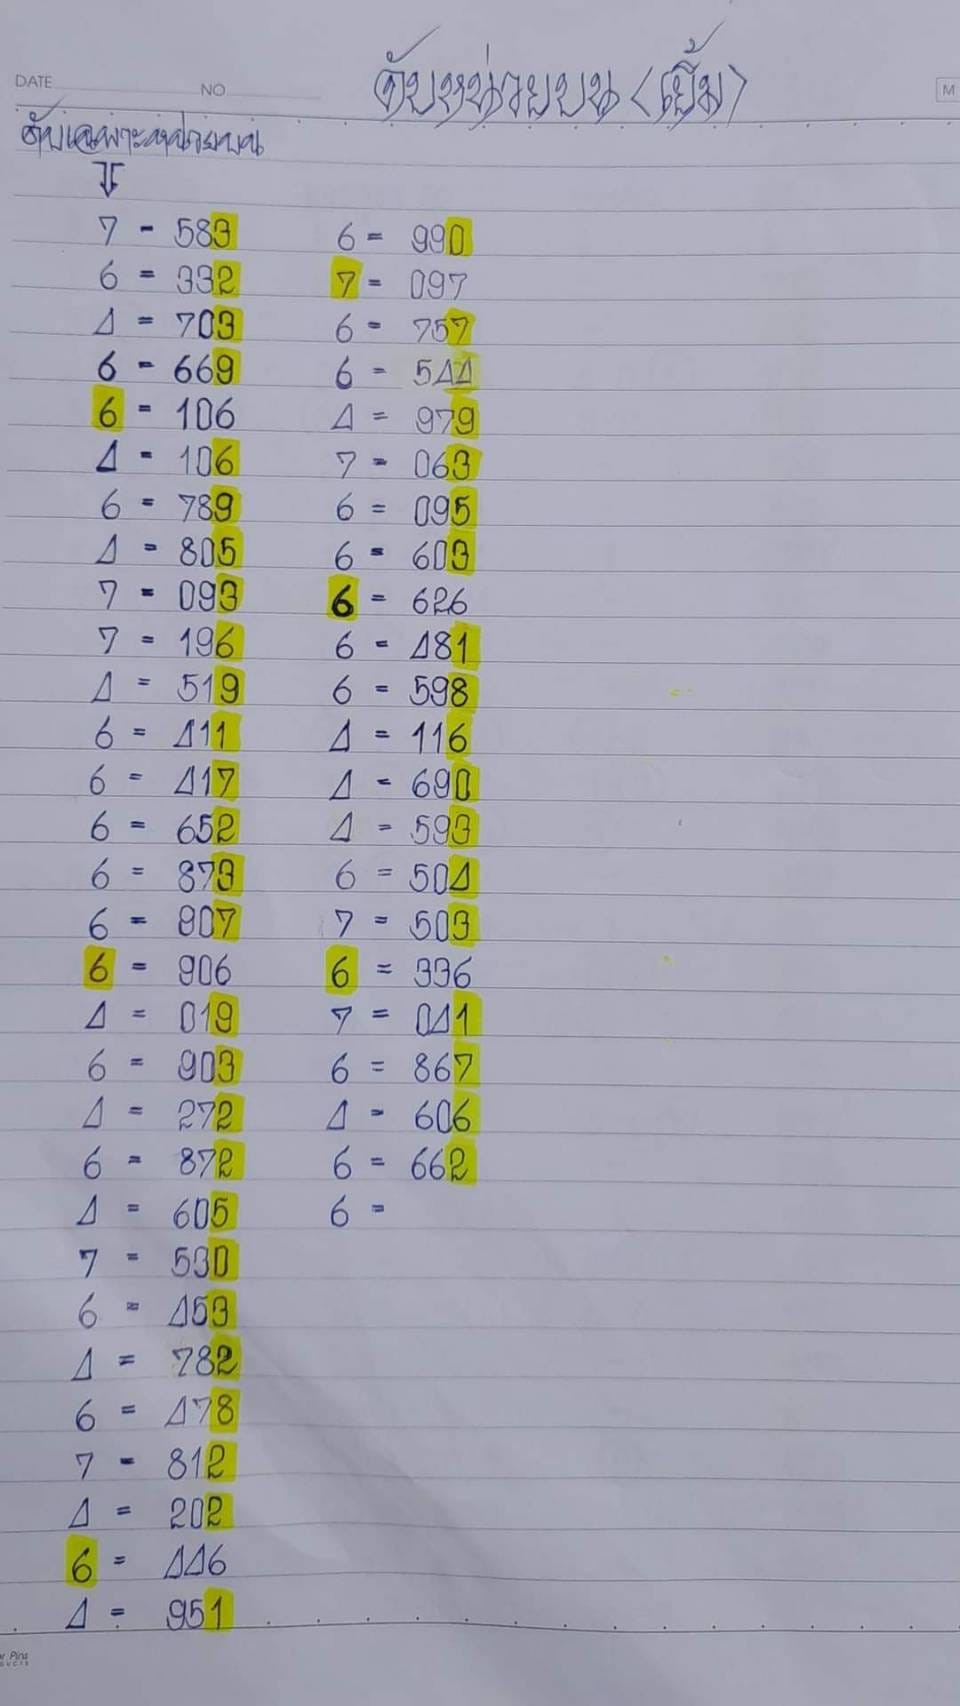 DATE NO
ดับหน่วยบน (เยิ้ม)
M
ดับเฉพาะหน่วยบน
7 - 583
6 = 332
4 = 703
6 = 669
6 = 106
4 = 106
6 = 789
4 = 805
7 = 093
7 = 196
4 = 519
6 = 411
6 = 417
6 = 652
6 = 873
6 = 907
6 = 906
4 = 019
6 = 903
4 = 272
6 = 872
4 = 605
7 = 530
6 = 453
4 = 782
6 = 478
7 - 812
4 = 202
6 = 446
4 = 951
6 = 990
7 = 097
6 = 757
6 = 544
4 = 979
7 = 063
6 = 095
6 = 603
6 = 626
6 = 481
6 = 598
4 = 116
4 = 690
4 = 593
6 = 504
7 = 503
6 = 336
7 = 041
6 = 867
4 = 606
6 = 662
6 =